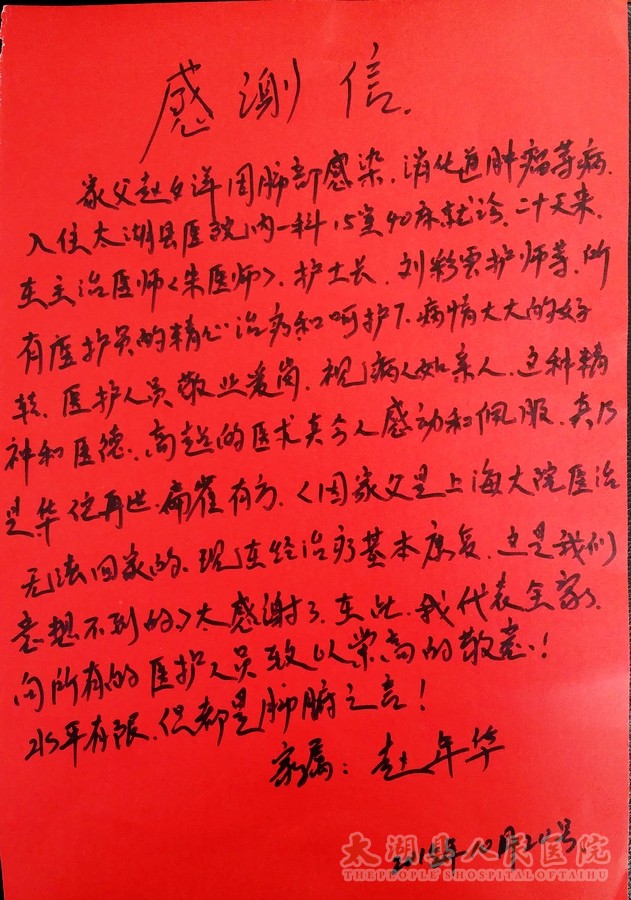 感谢信.
家父赵女洋因肺部感染、消化道肿瘤等病.
入住太湖县医院内一科15室40床就诊、二十天来、
在主治医师<朱医师>、护士长、刘彩云护师等、所
有医护员的精心治疗和呵护下、病情大大的好
转、医护人员敬业爱岗、视病人如亲人、这种精
神和医德、高超的医术真令人感动和佩服、真乃
是华佗再世、扁雀有方、<因家父是上海大院医治
无法回家的、现在经治疗基本康复、这是我们
意想不到的>太感谢了、在此、我代表全家、
向所有的医护人员致以崇高的敬意!
水平有限、但都是肺腑之言!
家属:赵年华
号
太湖县人民医院
THE PEOPLE'S HOSPITAL OF TAIHU